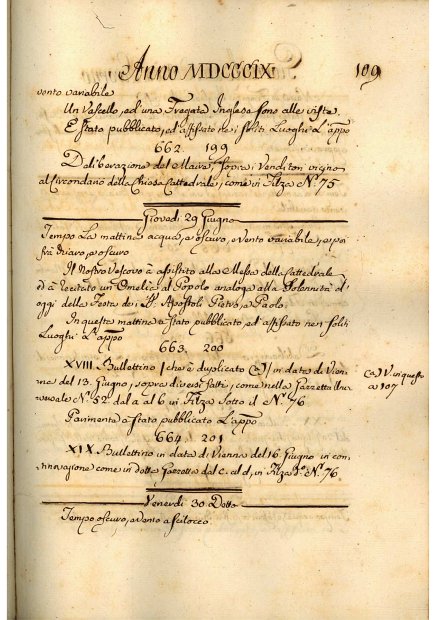 Anno MDCCCIX. 109
vento variabile
Un Vascello, ed una Fregata Inglesa sono alle viste.
E stato pubblicato, ed affissato nei soliti Luoghi L'appo
662. 199
Deliberazione del Maire, sopra i Venditori vicino
al Circondario della Chiesa Cattedrale, come in Filza Nº. 75
Giovedì 29 Giugno
Tempo La mattina acqua, e oscuro, e Vento variabile, e poi
frà chiaro, e oscuro
Il Nostro Vescovo à assistito alla Messa della Cattedrale
ed à recitato un Omelia al Popolo analoga alla Solennità d'
oggi della Festa dei S.S. Apostoli Pietro, e Paolo.
In questa mattina è stato pubblicato ed affissato nei soliti
Luoghi L'appo
663. 200
XVIII. Bullettino | che è duplicato (a) | in data di Vien-
na del 13. Giugno, sopra diversi fatti, come nella Gazzetta
Nº. 52. dal a al 6 in Filza Sotto il Nº. 76
(a) V. in questo
a 107
Parimente è stato pubblicato L'appo
664. 201
XIX. Bullettino in data di Vienna del 16 Giugno in con-
tinovazione come in detta Gazzetta dal c. al d, in Filza Nº. 76
Venerdì 30 Detto
Tempo oscuro, e Vento a scilocco